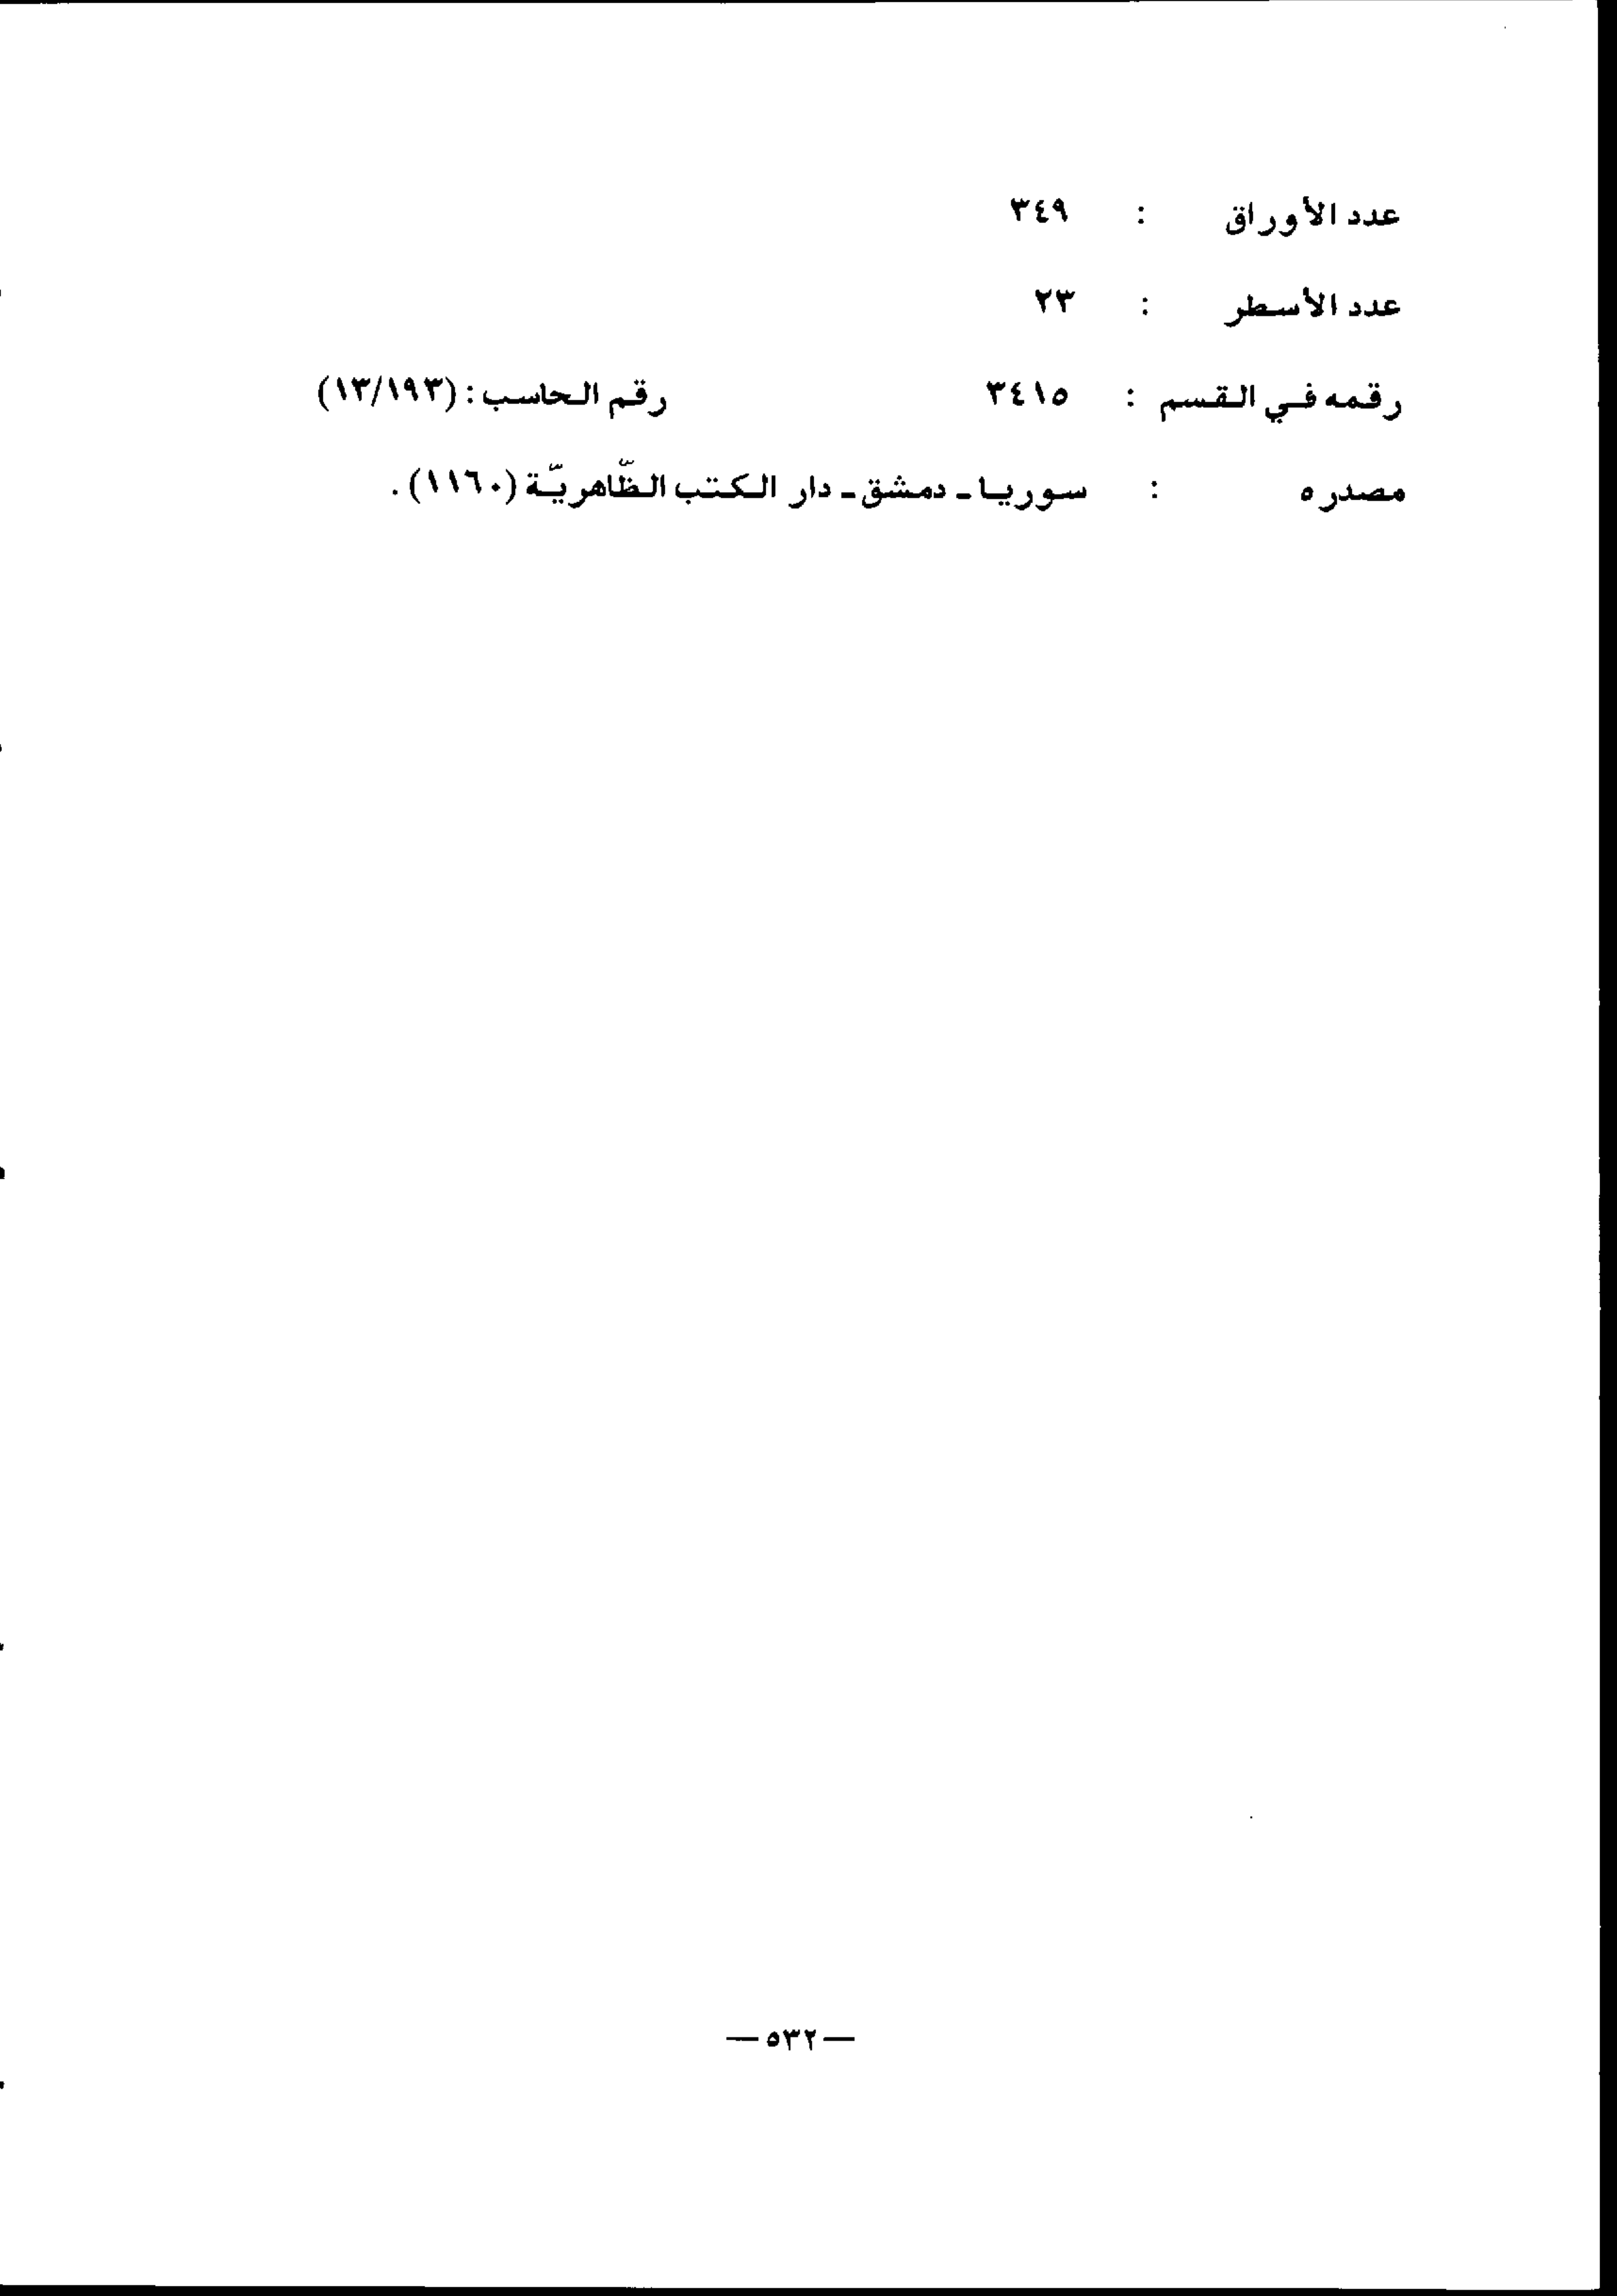 عدد الأوراق : ٣٤٩
عدد الأسطر : ٢٣
رقمه في القسم : ٣٤١٥ رقم الحاسب : (١٣/١٩٣)
مصدره : سوريا - دمشق - دار الكتب الظّاهريّة (١١٦٠) .
— ٥٣٢ —